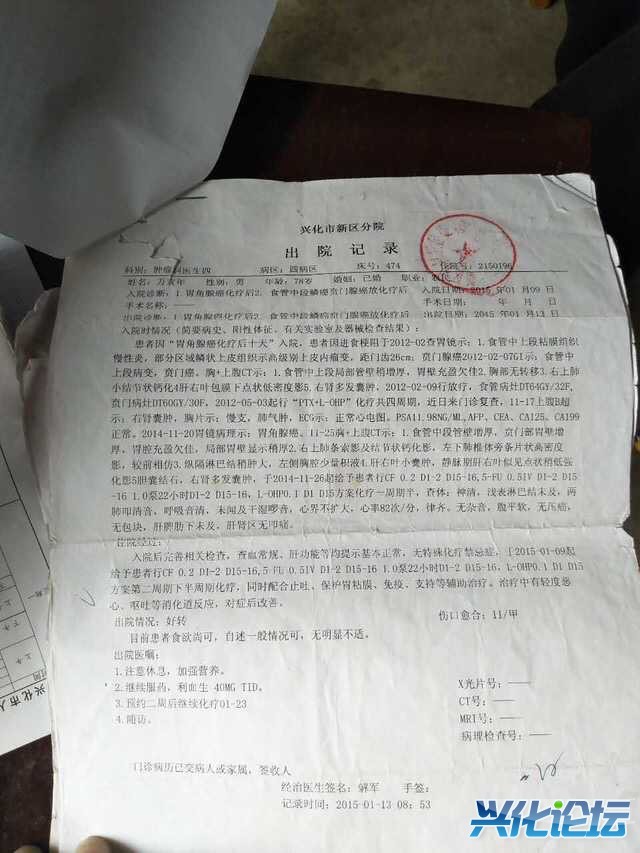 兴化市新区分院
出 院 记 录
科别：肿瘤科医生四 病区：四病区 床号：474 住院号：2150196
姓名：万 年 性别：男 年龄：78岁 婚姻：已婚 职业：农民
入院诊断：1.胃角腺癌化疗后2.食管中段鳞癌贲门腺癌放化疗后 入院日期：2015年01月09日
手术名称：—— 手术日期： 年 月 日
出院诊断：1.胃角腺癌化疗后2.食管中段鳞癌贲门腺癌放化疗后 出院日期：2015年01月13日
入院时情况（简要病史、阳性体征、有关实验室及器械检查结果）：
患者因"胃角腺癌化疗后十天"入院，患者因进食梗阻于2012-02查胃镜示：1.食管中上段粘膜组织
慢性炎，部分区域鳞状上皮组织示高级别上皮内瘤变，距门齿26cm；贲门腺癌2012-02-07GI示：食管中
上段病变，胸+上腹CT示：1.食管中上段局部管壁稍增厚，胃壁充盈欠佳2.胸部无转移3.右上肺
小结节状钙化4肝右叶包膜下点状低密度影5.右肾多发囊肿，2012-02-09行放疗，食管病灶DT64GY/32F,
贲门病灶DT60GY/30F，2012-05-03起行"PTX+L-OHP"化疗共四周期，近日来门诊复查，11-17上腹B超
示：右肾囊肿，胸片示：慢支，肺气肿，ECG示：正常心电图。PSA11.98NG/ML,AFP、CEA、CA125、CA199
正常。2014-11-20胃镜病理示：胃角腺癌、11-25胸+上腹CT示：1.食管中段管壁增厚，贲门部胃壁增
厚，胃腔充盈欠佳，局部胃壁显示稍厚2.右上肺条索影及结节状钙化影，左下肺椎体旁条片状高密度
影，较前相仿3.纵隔淋巴结稍肿大，左侧胸腔少量积液4.肝右叶小囊肿，静脉期肝右叶似见点状稍低强
化影5胆囊结石，右肾多发囊肿，于2014-11-26起给予患者行CF 0.2 D1-2 D15-16,5-FU 0.5IV D1-2 D15
-16 1.0泵22小时D1-2 D15-16，L-OHP0.1 D1 D15方案化疗一周期半，查体：神清，浅表淋巴结未及，两
肺叩清音，呼吸音清，未闻及干湿啰音，心界不扩大，心率82次/分，律齐，无杂音，腹平软，无压痛，
无包块，肝脾肋下未及，肝肾区无叩痛。
住院经过：
入院后完善相关检查，查血常规、肝功能等均提示基本正常，无特殊化疗禁忌症，于2015-01-09起
给予患者行CF 0.2 D1-2 D15-16,5-FU 0.5IV D1-2 D15-16 1.0泵22小时D1-2 D15-16，L-OHP0.1 D1 D15
方案第二周期下半周期化疗，同时配合止吐、保护胃粘膜、免疫、支持等辅助治疗。治疗中有轻度恶
心、呕吐等消化道反应，对症后改善。
出院情况：好转 伤口愈合：11/甲
目前患者食欲尚可，自述一般情况可，无明显不适。
出院医嘱：
1.注意休息，加强营养。
2.继续服药，利血生 40MG TID。 X光片号：——
3.预约二周后继续化疗01-23 CT号：——
4.随访。 MRI号：——
病理检查号：——
门诊病历已交病人或家属，签收人
经治医生签名：解军 手签：
记录时间：2015-01-13 08：53
兴化市人
上午
兴化论坛